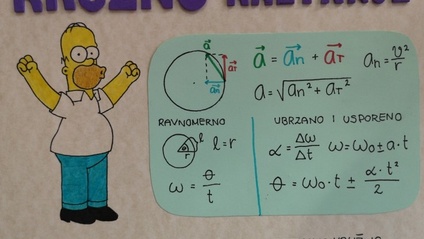 KRUŽNO KRETANJE
a⃗ a⃗n a⃗τ
a⃗ = a⃗n + a⃗τ an = v²/r
a = √(an² + aτ²)
RAVNOMERNO
θ r l l = r
ω = θ/t
UBRZANO I USPORENO
α = Δω/Δt ω = ω₀ ± α · t
θ = ω₀ · t ± α · t²/2